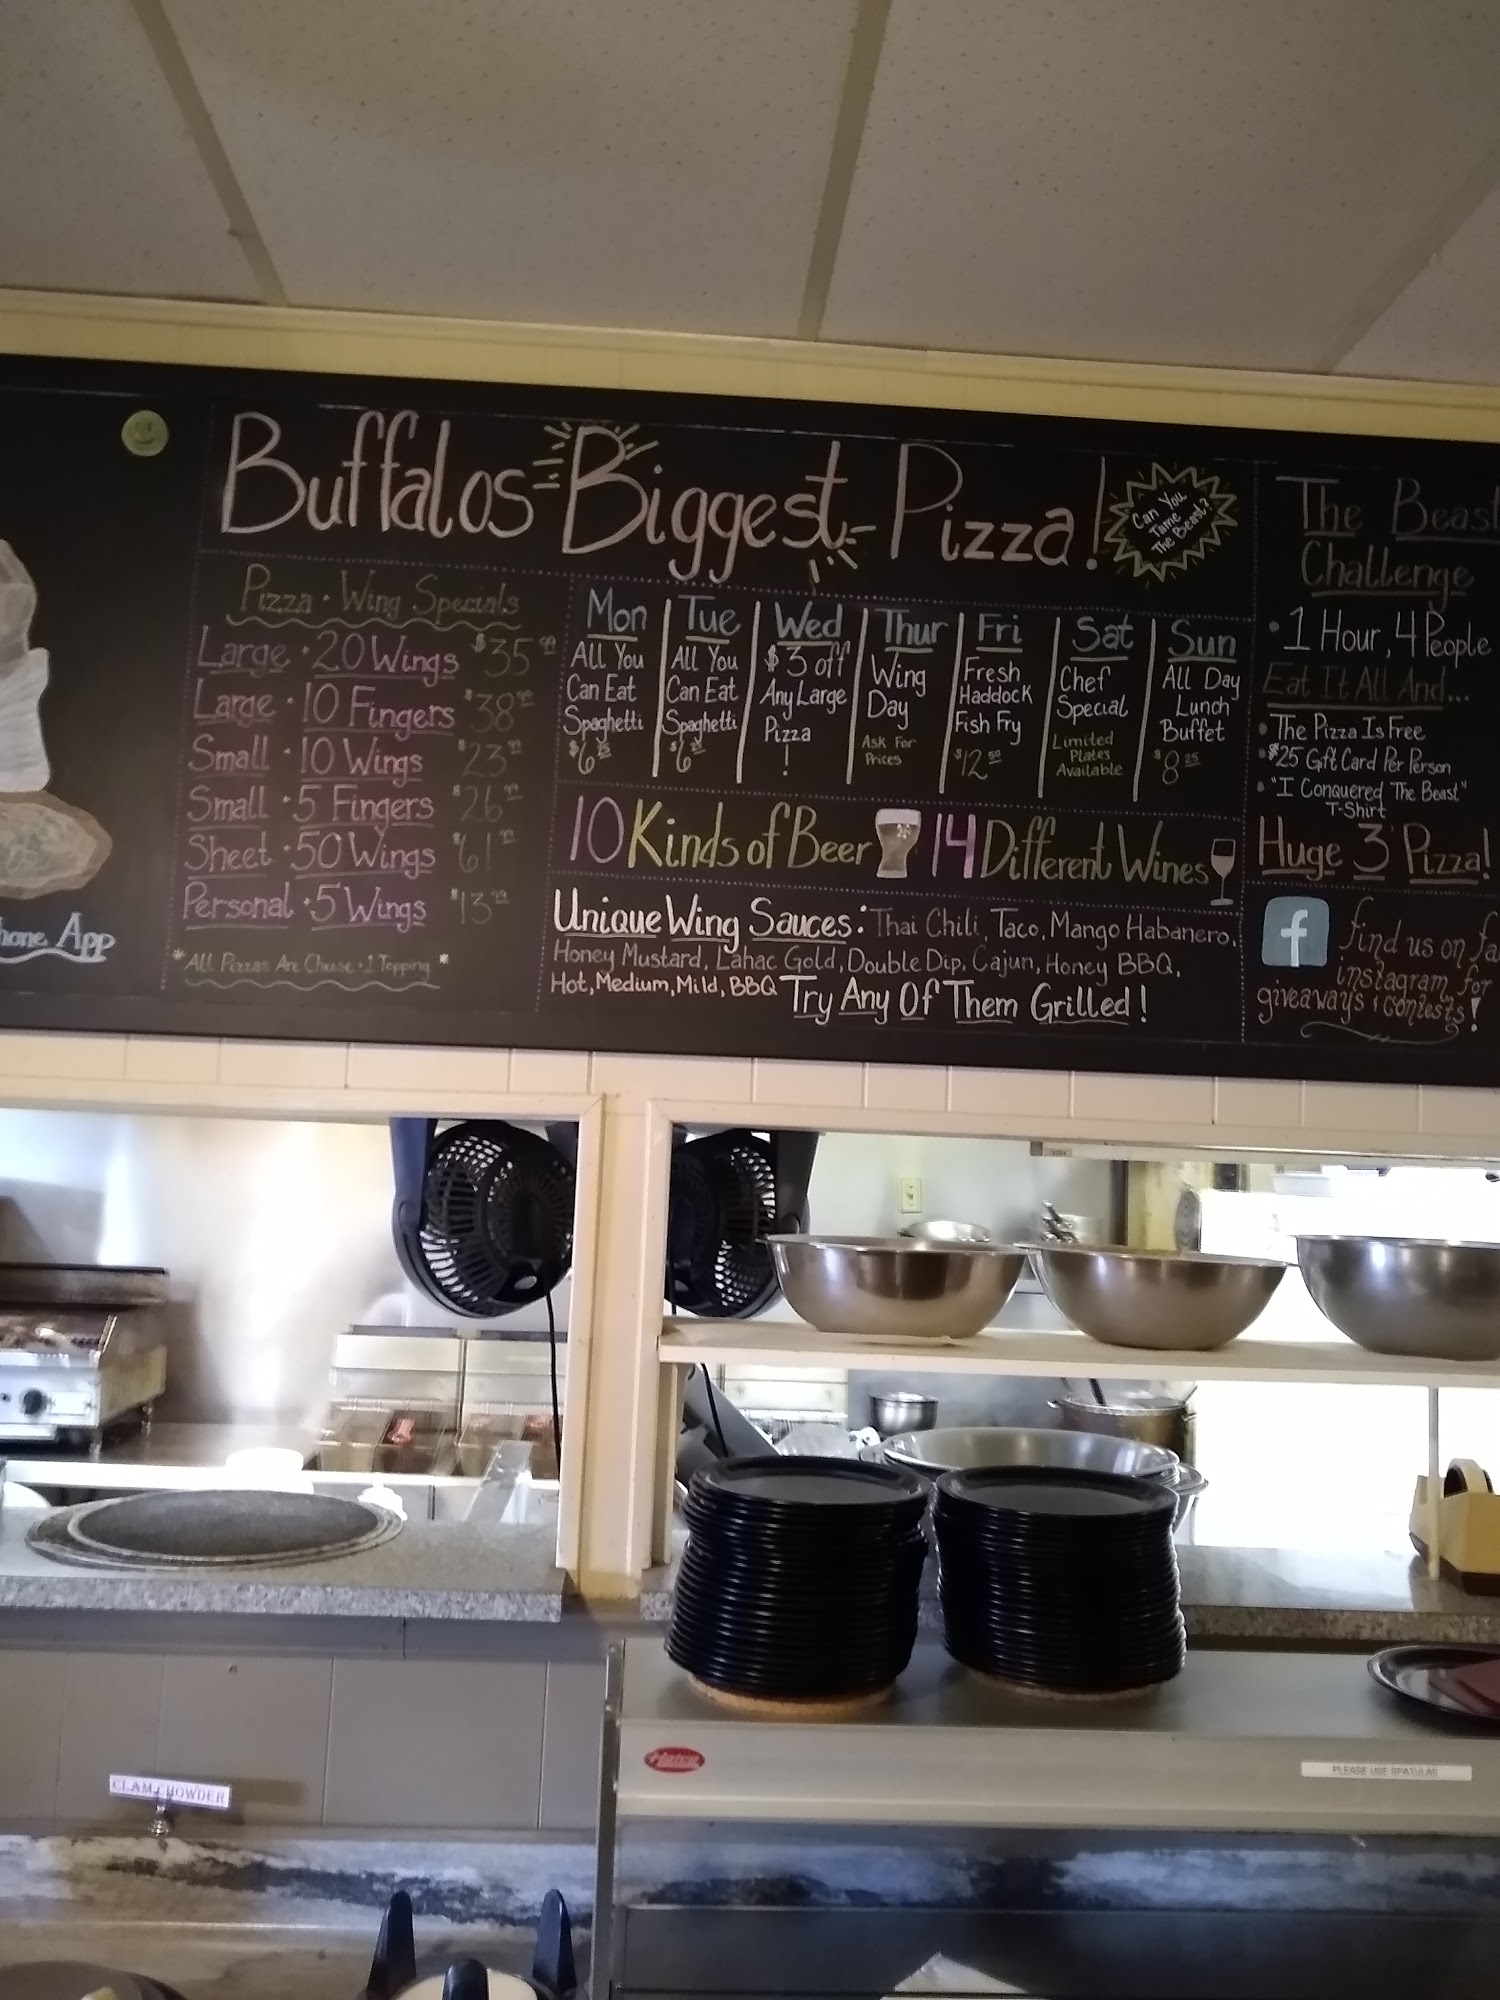 Buffalos Biggest Pizza!
Can You
Tame
The Beast?
Pizza · Wing Specials
Large · 20 Wings $35 99
Large · 10 Fingers $38 99
Small · 10 Wings $23 99
Small · 5 Fingers $26 99
Sheet · 50 Wings $61 99
Personal · 5 Wings $13 99
*All Pizzas Are Cheese + 1 Topping*
Mon
All You
Can Eat
Spaghetti
Tue
All You
Can Eat
Spaghetti
Wed
$3 off
Any Large
Pizza
!
Thur
Wing
Day
Ask For
Prices
Fri
Fresh
Haddock
Fish Fry
$12 50
Sat
Chef
Special
Limited
Plates
Available
Sun
All Day
Lunch
Buffet
$8 25
10 Kinds of Beer 14 Different Wines
Unique Wing Sauces: Thai Chili, Taco, Mango Habanero,
Honey Mustard, Lahac Gold, Double Dip, Cajun, Honey BBQ,
Hot, Medium, Mild, BBQ Try Any Of Them Grilled!
The Beast
Challenge
• 1 Hour, 4 People
Eat It All And...
• The Pizza Is Free
• $25 Gift Card Per Person
• "I Conquered The Beast"
T-Shirt
Huge 3' Pizza!
f
find us on fa
instagram for
giveaways & contests!
hone App
CLAM CHOWDER
Hatco
PLEASE USE SPATULAS